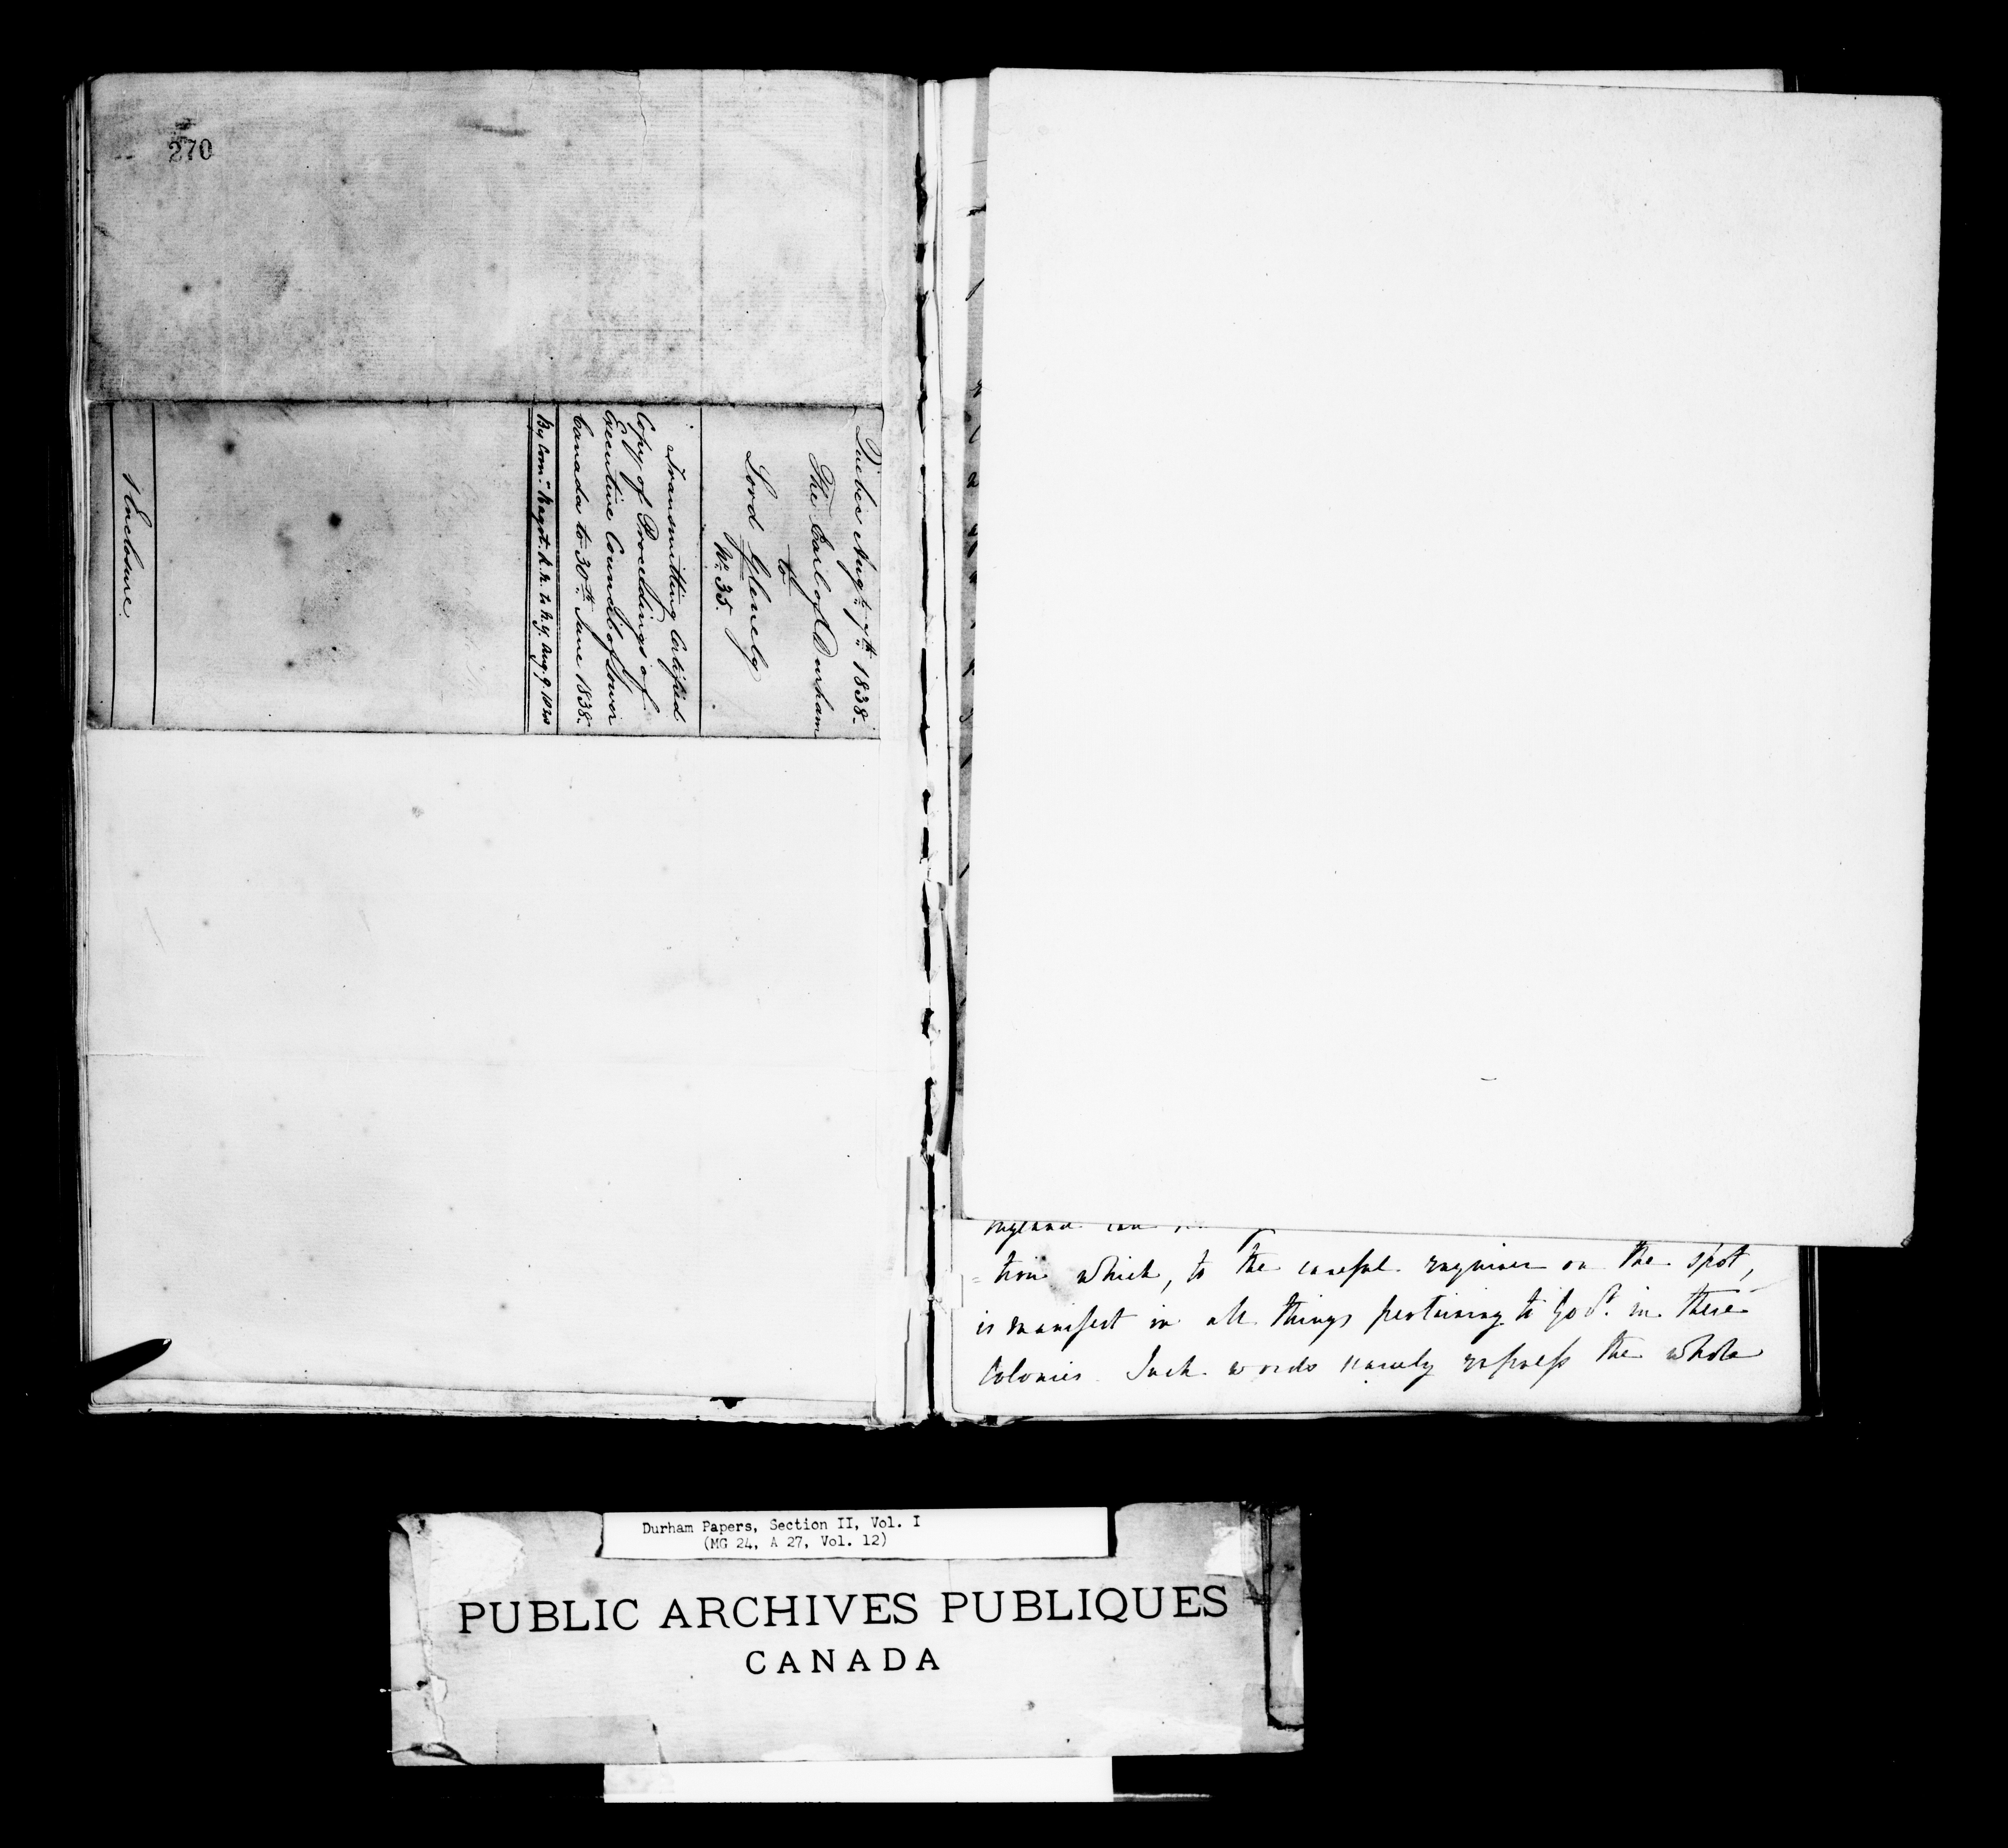 270
Quebec Augt. 9th 1838.
The Earl of Durham
to
Lord Glenelg
No. 35.
Transmitting Certified
Copy of Proceedings of
Executive Council of Lower
Canada to 30th June 1838.
1 Enclosure.
tion which, to the careful enquirer on the spot,
is manifest in all things pertaining to Govt. in these
Colonies. Such words merely express the whole
Durham Papers, Section II, Vol. I
(MG 24, A 27, Vol. 12)
PUBLIC ARCHIVES PUBLIQUES
CANADA